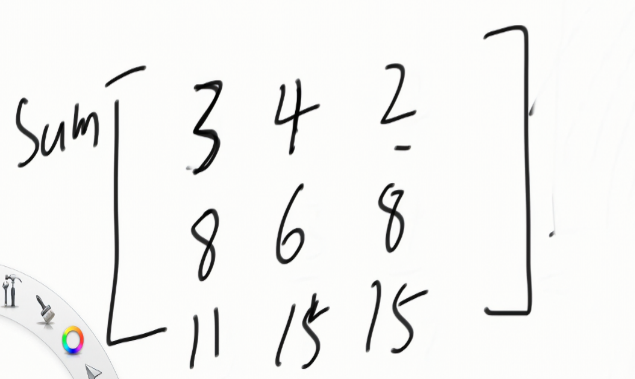 Sum [ 3 4 2 ]
8 6 8
11 15 15